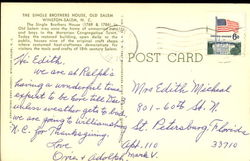 THE SINGLE BROTHERS HOUSE, OLD SALEM
WINSTON-SALEM, N. C.
The Single Brothers House (1769 & 1786), in
Old Salem was once the home of unmarried men
and boys in the Moravian Congregation Town.
Today the restored building, open daily to the
public, houses nine of the original craft shops
where costumed host-craftsmen demonstrate for
visitors the tools and crafts of 18th century Salem.
POST CARD
6c
Hi Edith,
we are at Ralph's
having a wonderful time
expect to be here till Dec 3
unless weather gets to bad
we are going to Williamsburg
N.C. for Thanksgiving.
Love
Orra & Adolph
Mrs Edith Micheal
801-60th St. N.
St. Petersburg Florida
Apt. 110 33710
Mark V.